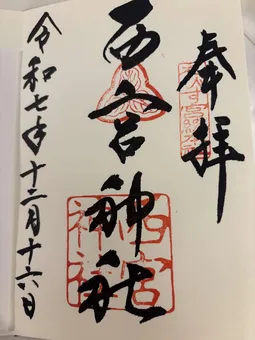 奉拝
西宮神社
令和七年十二月十六日
西宮
神社